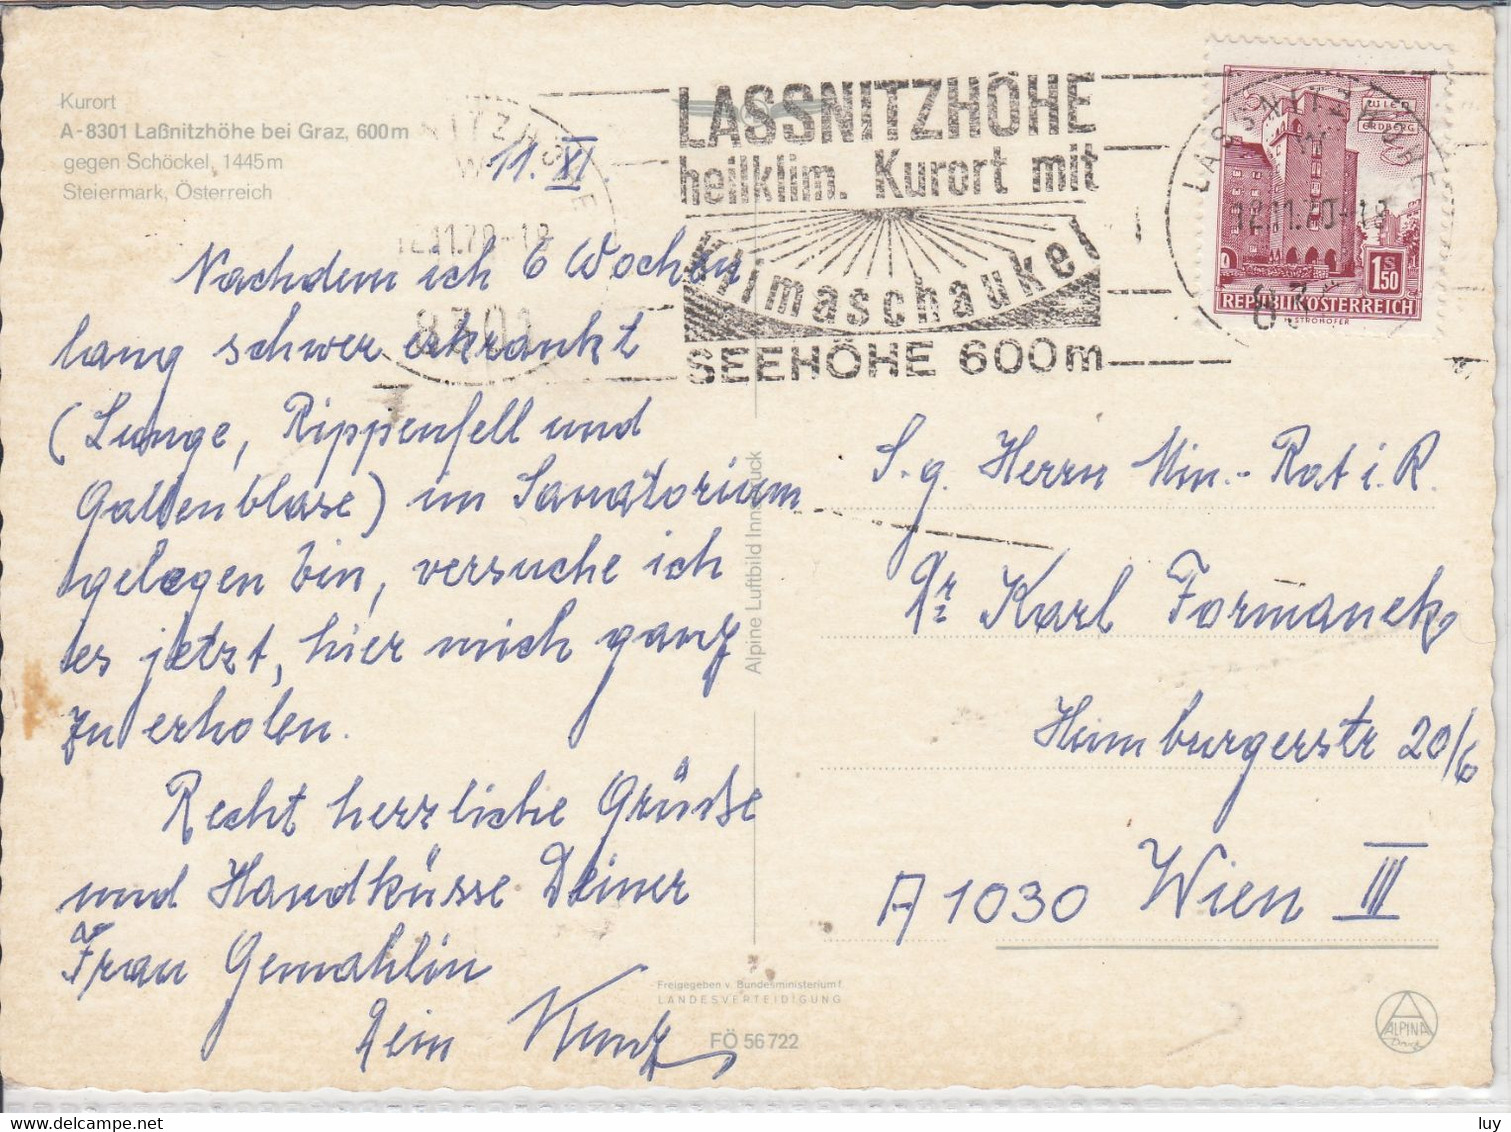 Kurort
A-8301 Laßnitzhöhe bei Graz, 600m
gegen Schöckel, 1445m
Steiermark, Österreich
11. XI.
LASSNITZHÖHE
heilklim. Kurort mit
Klimaschaukel
SEEHÖHE 600m
LASSNITZHÖHE
12.11.70-18
WIEN
ERDBERG
1 S 50
REPUBLIK ÖSTERREICH
H. STROHOFER
8301
Nachdem ich 6 Wochen
lang schwer erkrankt
(Lunge, Rippenfell und
Gallenblase) im Sanatorium
gelegen bin, versuche ich
es jetzt, hier mich ganz
zu erholen.
Recht herzliche Grüße
und Handküsse Deiner
Frau Gemahlin
Dein Kunz
S.g. Herrn Min.-Rat i.R.
Dr. Karl Formanek
Hainburgerstr 20/6
A 1030 Wien III
Alpine Luftbild Innsbruck
Freigegeben v. Bundesministerium f.
LANDESVERTEIDIGUNG
FÖ 56 722
ALPINA
Druck
luy
www.delcampe.net